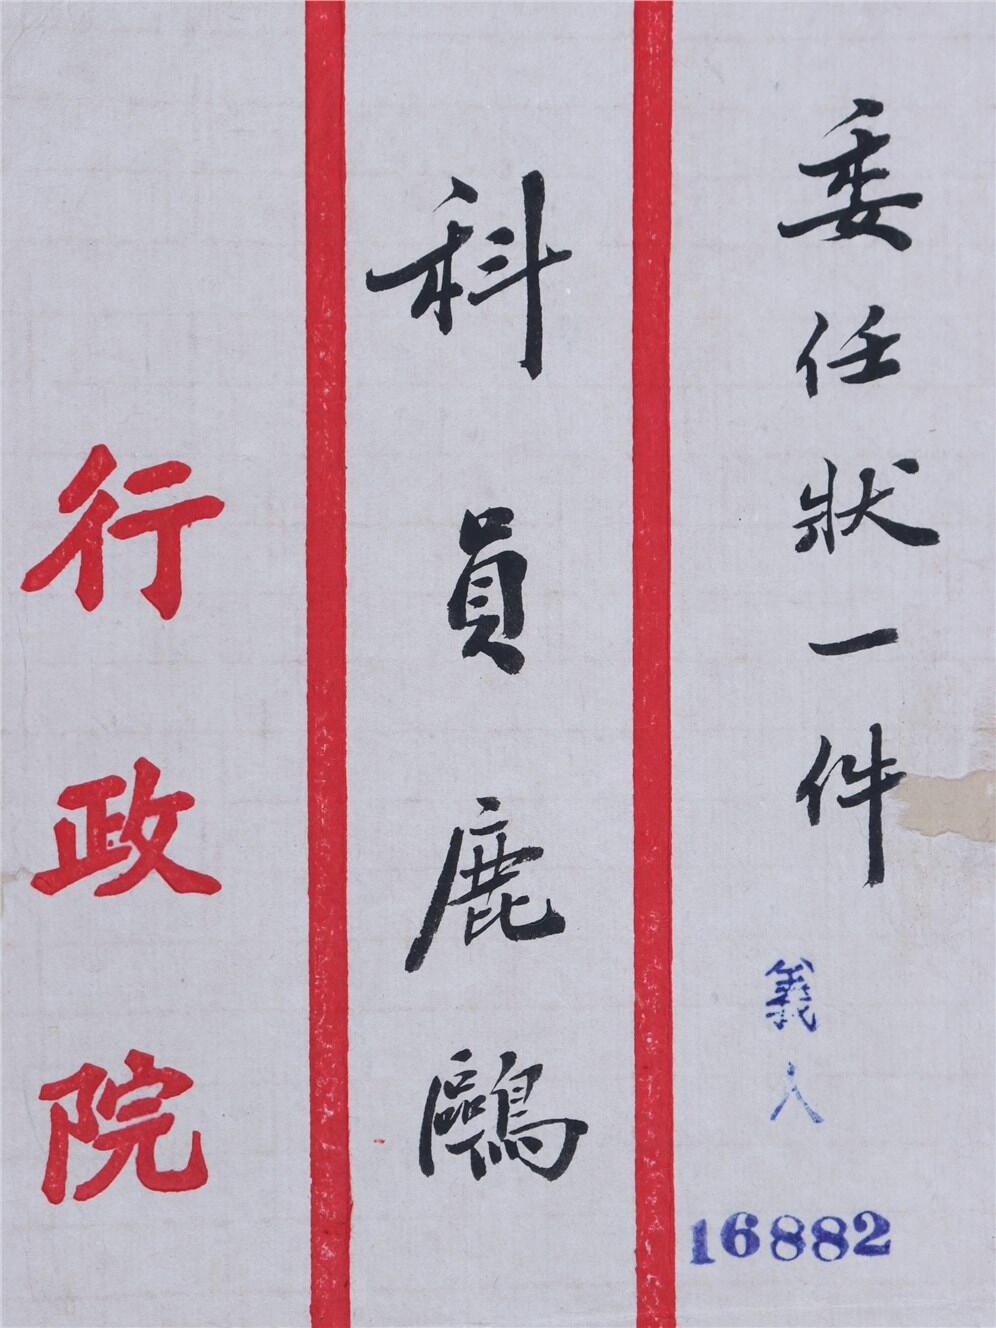 委任狀一件
義人
16882
科員鹿鷗
行政院